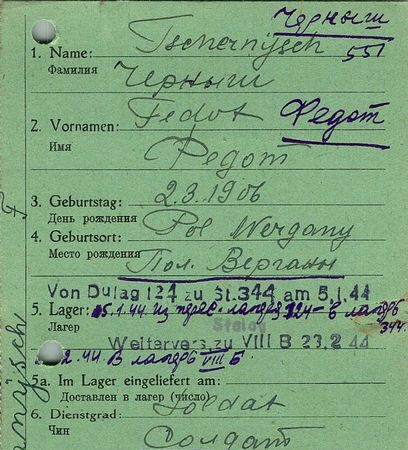 Черныш
551
1. Name: Tschernysch
Фамилия Черныш
2. Vornamen: Fedot Федот
Имя Федот
3. Geburtstag: 2.3.1906
День рождения
4. Geburtsort: Pol Wergany
Место рождения Пол. Верганы
Von Dulag 124 zu St. 344 am 5.1.44
5. Lager: 05.1.44. Из перес. лагеря 124 - в лагерь 344
Лагерь Stalag
Weitervers. zu VIII B 23.2.44
2.44. В лагерь VIII Б
5a. Im Lager eingeliefert am:
Доставлен в лагерь (число)
6. Dienstgrad: Soldat
Чин Солдат